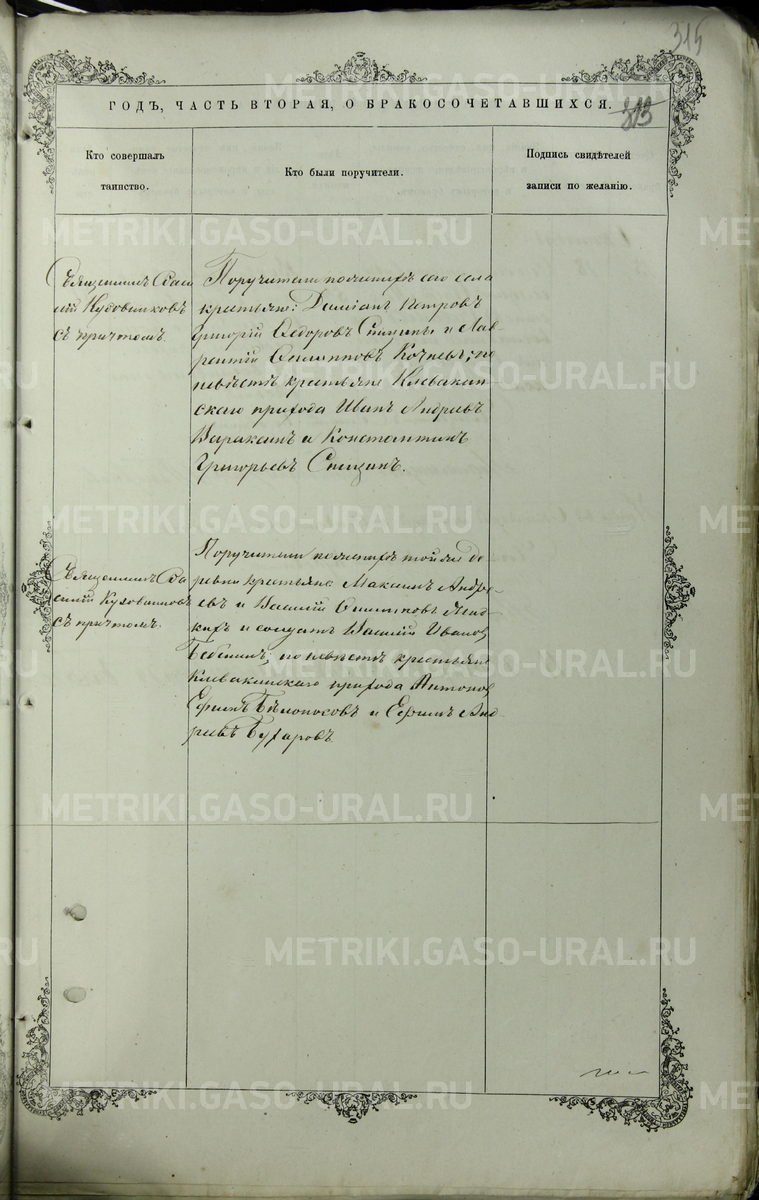 315
313
ГОДЪ, ЧАСТЬ ВТОРАЯ, О БРАКОСОЧЕТАВШИХСЯ.
Кто совершалъ
таинство.
Кто были поручители.
Подпись свидѣтелей
записи по желанію.
Священникъ Васи
лій Кудовшиковъ
съ причтомъ.
Поручители по женихѣ сего села
крестьяне: Даміанъ Петровъ
Григорій Ѳедоровъ и Лав-
рентій Филипповъ Кочневъ; по
невѣстѣ крестьяне Клевакин-
скаго прихода Иванъ Андреевъ
Баракинъ и Константинъ
Григорьевъ
Священникъ Ва
силій
съ причтомъ.
Поручители по женихѣ той же де
ревни крестьяне Максимъ Андре-
евъ и Василій
и солдатъ Василій Ивановъ
по невѣстѣ крестьяне
Клевакинскаго прихода Антонъ
Ефимъ Бѣлоносовъ и Ефимъ Анд-
реевъ Бухаровъ
METRIKI.GASO-URAL.RU